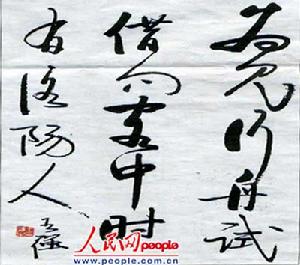 为见行舟试
借问客中时
有洛阳人
人民网people
www.people.com.cn